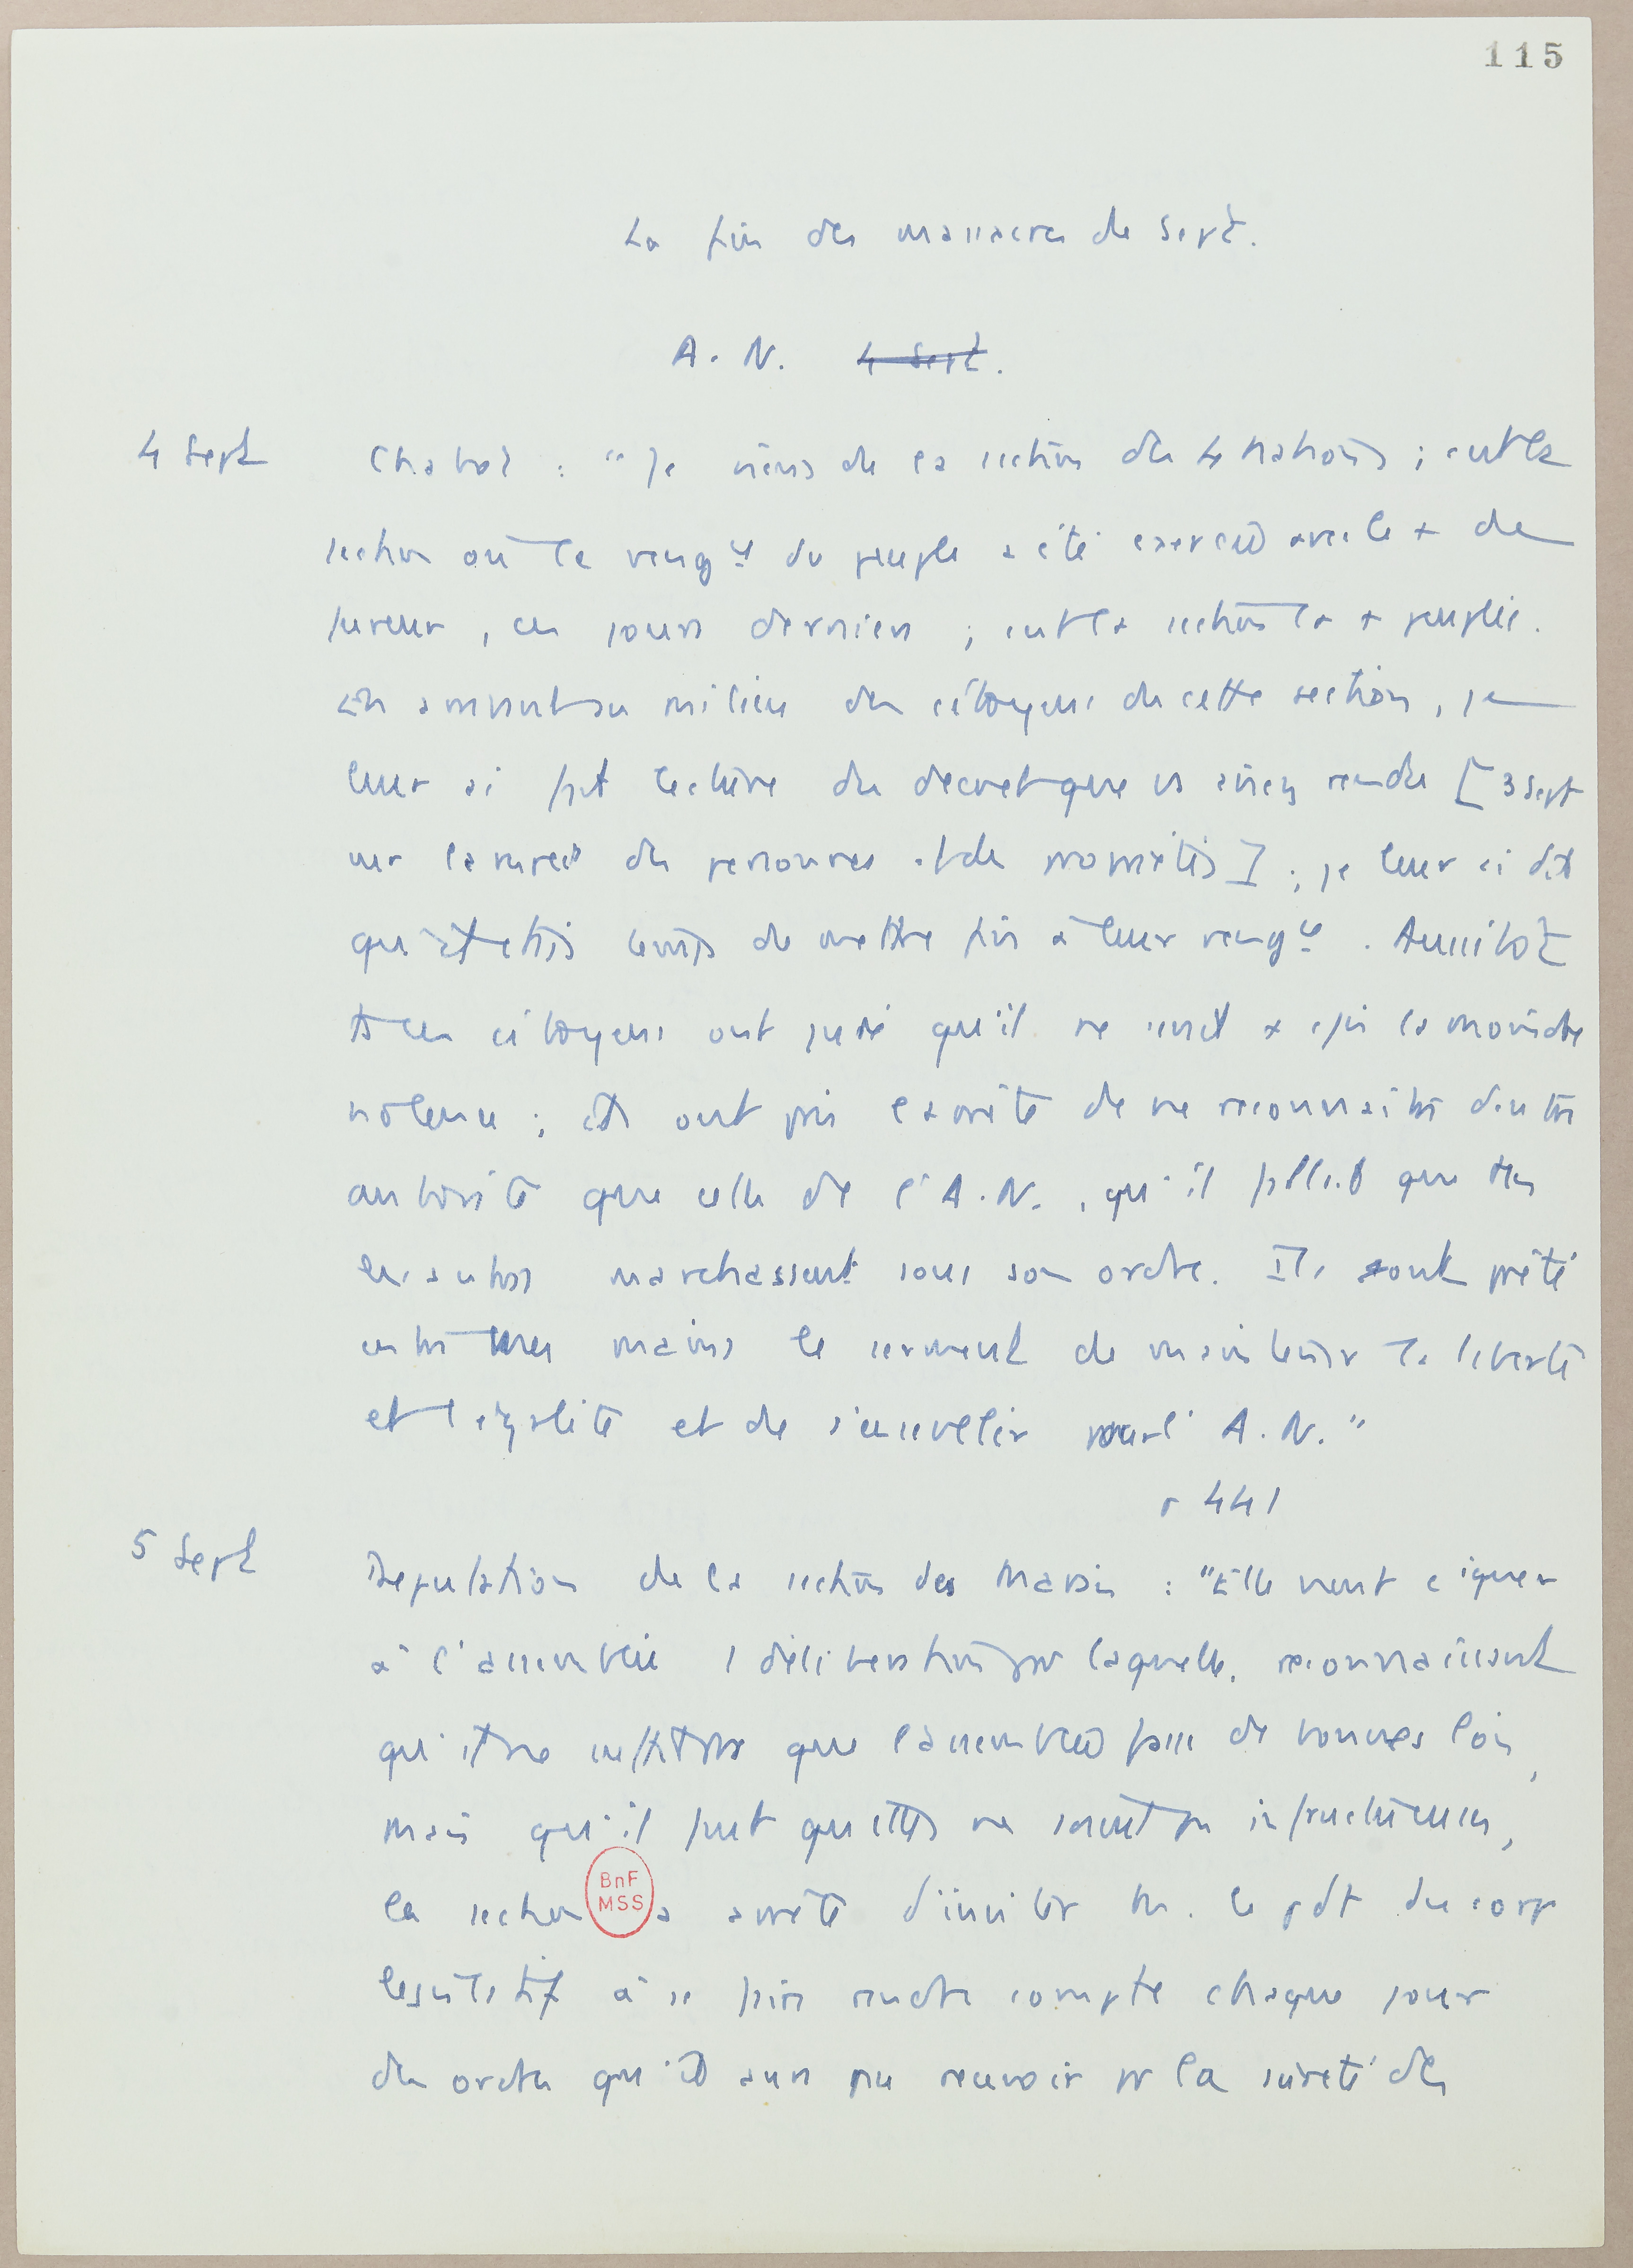 115
La fin des massacres de Sept.
A. N. 4 Sept.
4 Sept Chabot : "Je viens de la section des 4 Nations ; c'est la
section où la veng ce du peuple a été exercée avec le + de
fureur, ces jours derniers ; c'est la section la + peuplée.
En arrivant au milieu des citoyens de cette section, je
leur ai fait lecture du décret que vs aviez rendu [3 Sept
sur la sureté des personnes et des propriétés] ; je leur ai dit
qu'il était temps de mettre fin à leur veng ce. Aussitôt
ts ces citoyens ont juré qu'il ne serait + fait la moindre
violence ; ils ont pris l'arrêté de ne reconnaître d'autre
autorité que celle de l'A.N., qu'il fallait que ttes
les autres marchassent sous son ordre. Ils ont prêté
entre mes mains le serment de maintenir la liberté
et l'égalité et de s'ensevelir pour l'A.N."
p 441
5 Sept Députation de la section des Marais : "Elle vient
à l'assemblée 1 délibération par laquelle, reconnaissant
que l'assemblée fasse de bonnes lois,
mais qu'il faut qu'elles ne soient pas infructueuses,
la section a arrêté d'inviter M. le pdt du corps
législatif à se faire rendre compte chaque jour
des ordres qu'il aura pu recevoir pr la sûreté des
BnF
MSS